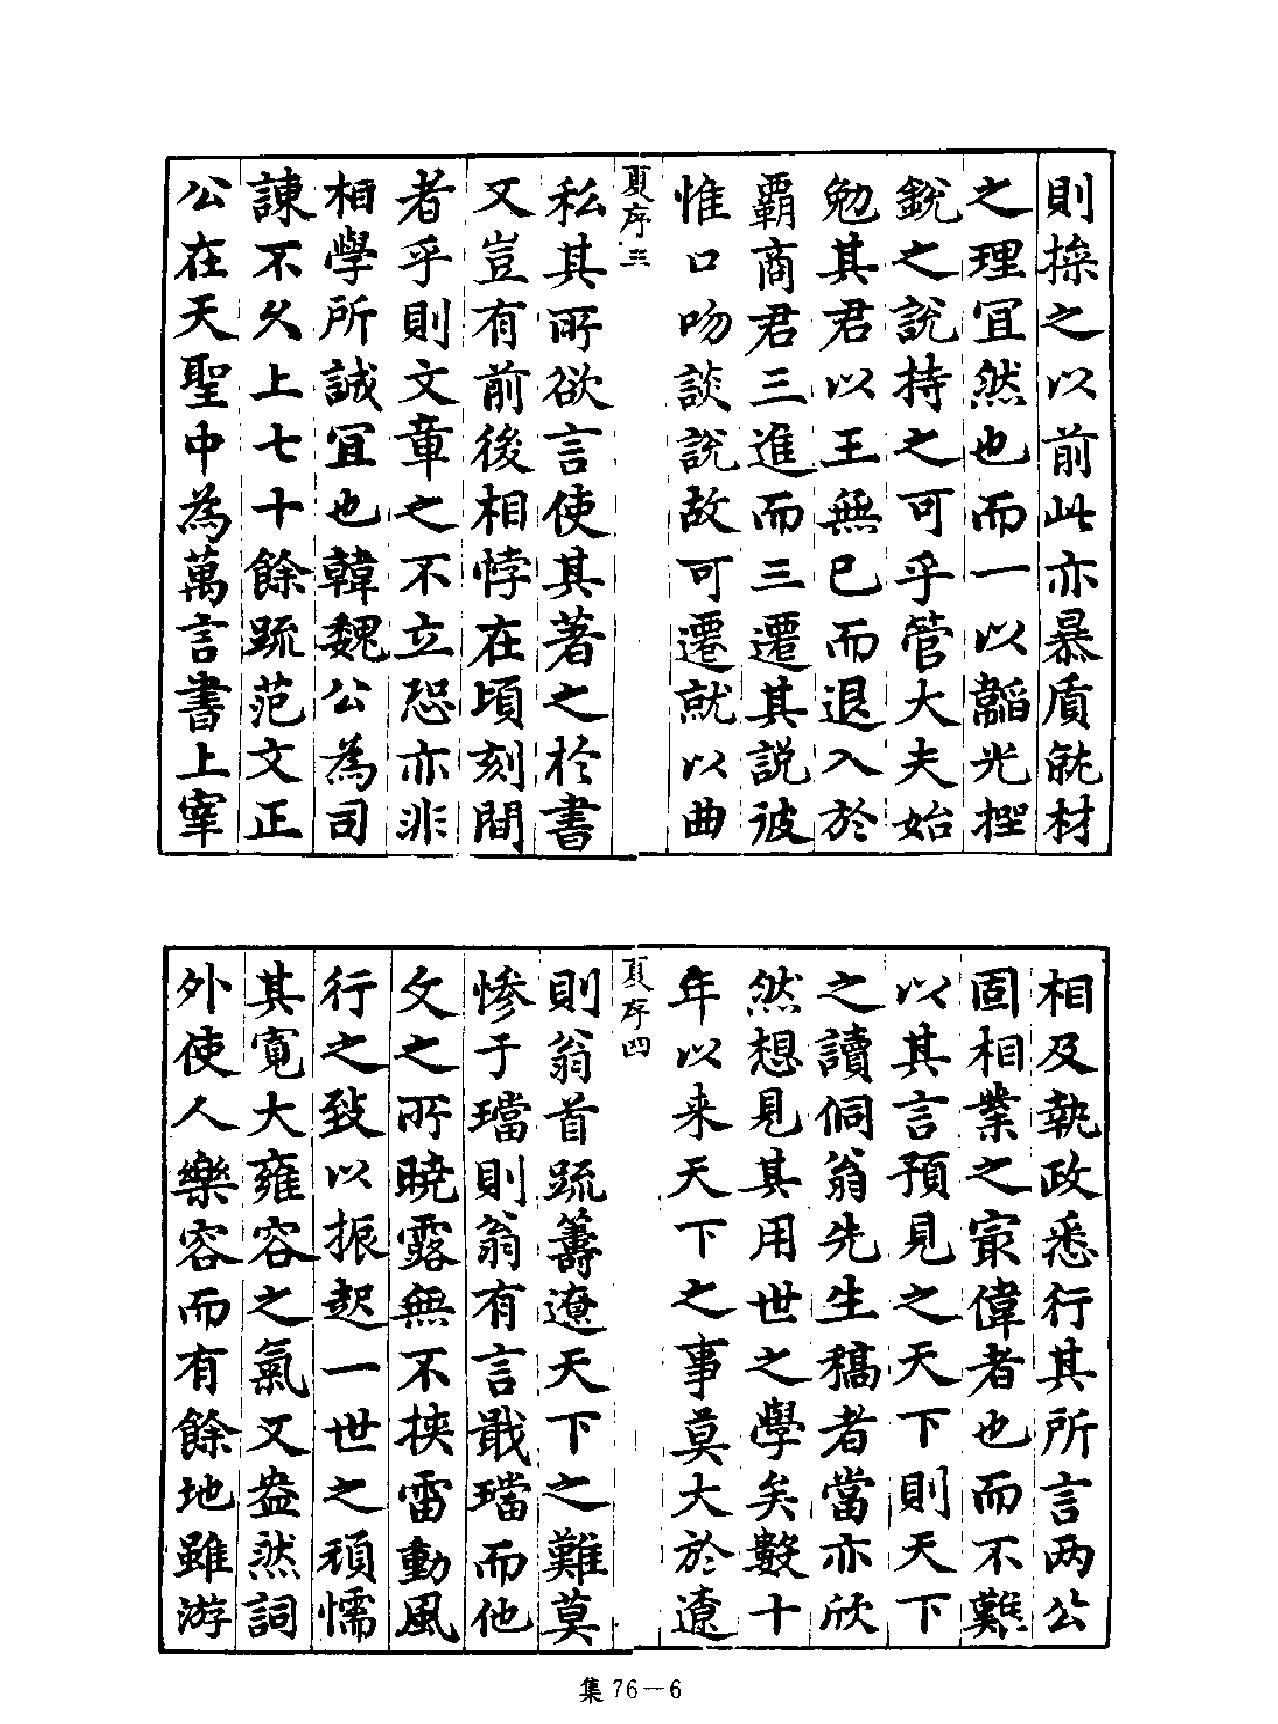 則操之以前此亦暴質眩材
之理宜然也而一以韜光揑
銳之說持之可乎管大夫始
勉其君以王無已而退入於
霸商君三進而三遷其説彼
惟口吻談說故可遷就以曲
夏序三
私其所欲言使其著之於書
又豈有前後相悖在頃刻間
者乎則文章之不立恐亦非
相學所誠宜也韓魏公為司
諫不久上七十餘疏范文正
公在天聖中為萬言書上宰
相及執政悉行其所言两公
固相業之寂偉者也而不難
以其言預見之天下則天下
之讀侗翁先生稿者當亦欣
然想見其用世之學矣數十
年以来天下之事莫大於遼
夏序四
則翁首疏籌遼天下之難莫
惨于璫則翁有言戢璫而他
文之所曉露無不挟雷動風
行之致以振起一世之頑懦
其寬大雍容之氣又盎然詞
外使人樂容而有餘地雖游
集 76－6